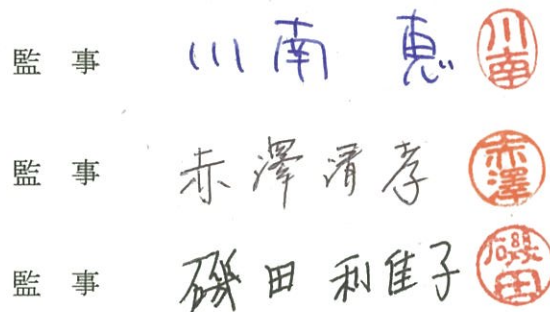 監 事 川南 恵 川南
監 事 赤澤清孝 赤澤
監 事 磯田 利佳子 磯田